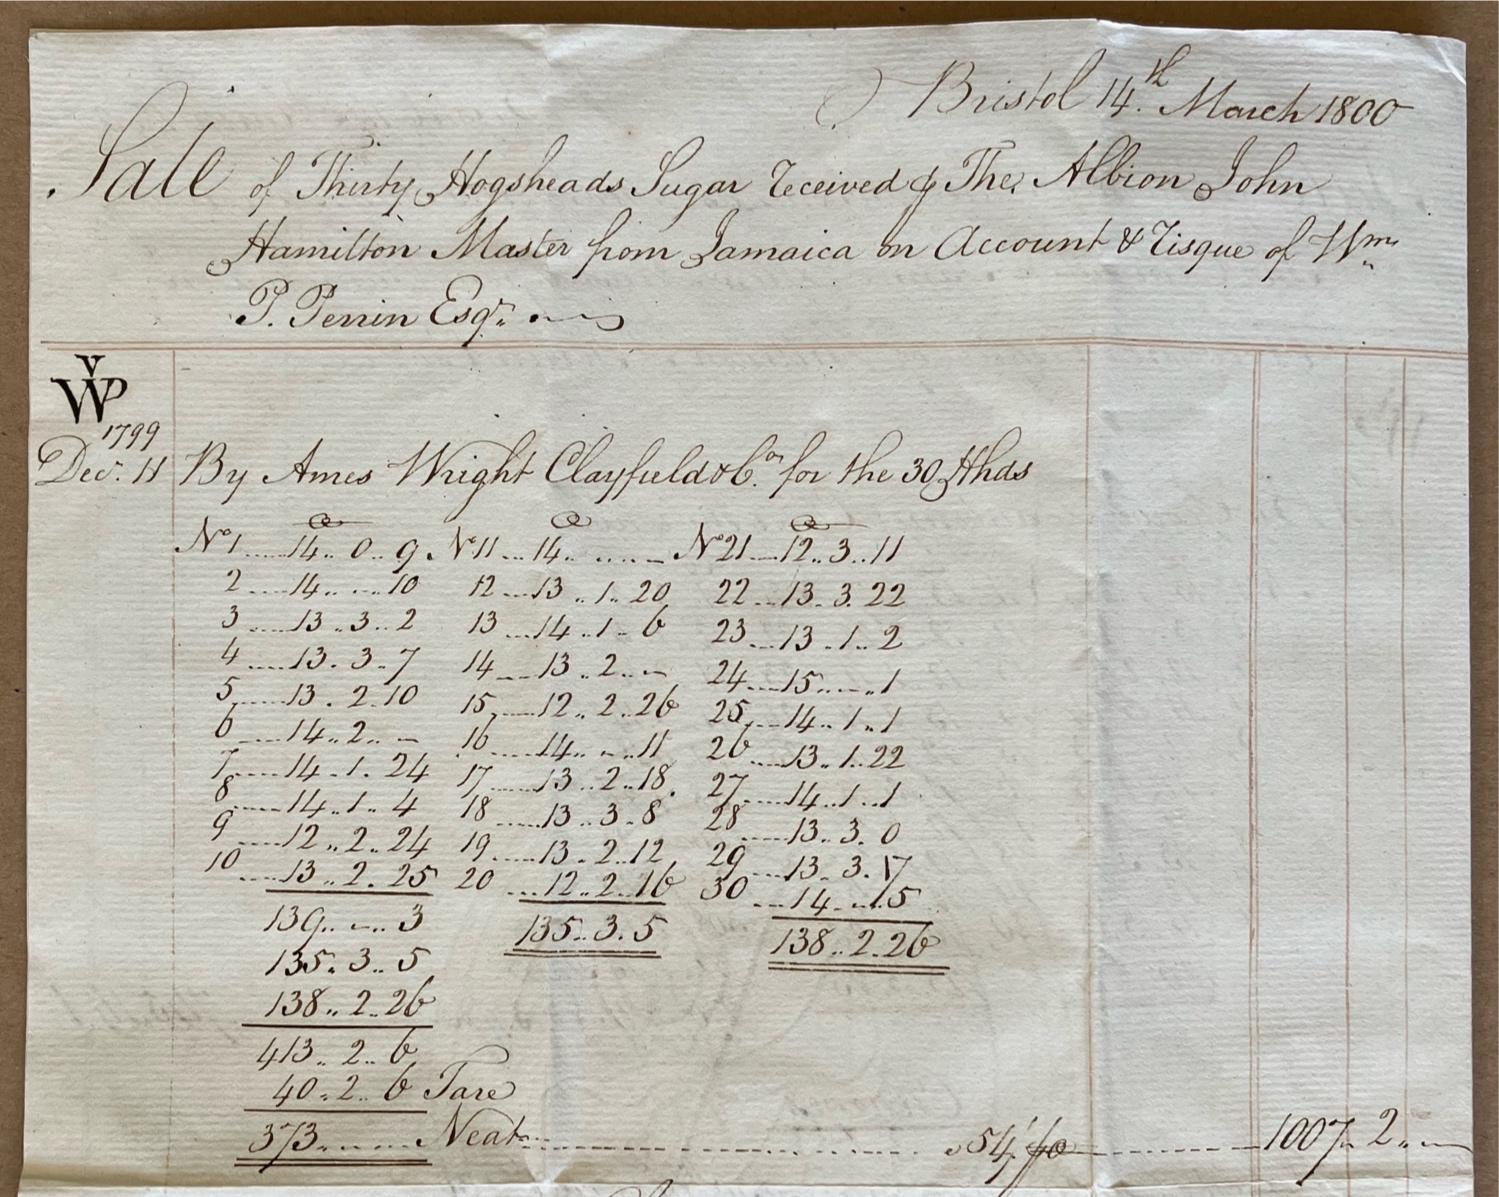 Bristol 14th March 1800
Sale of Thirty Hogsheads Sugar Received p The Albion John
Hamilton Master from Jamaica on Account & Risque of Wm
P. Perrin Esqr.
V
WP
1799
Decr. 11 By Ames Wright Clayfield & Co. for the 30 Hhds
No 1 .... 14 .. 0 .. 9 . No 11 ... 14 .. .... — No 21 ... 12 .. 3 .. 11
2 .... 14 .. ... 10 12 ... 13 .. 1 .. 20 22 ... 13 .. 3 . 22
3 .... 13 .. 3 .. 2 13 ... 14 .. 1 .. 6 23 ... 13 .. 1 .. 2
4 .... 13 .. 3 .. 7 14 ... 13 .. 2 .. — 24 ... 15 .. — .. 1
5 .... 13 .. 2 .. 10 15 ... 12 .. 2 .. 26 25 ... 14 .. 1 .. 1
6 .... 14 .. 2 .. — 16 .... 14 .. — .. 11 26 .... 13 .. 1 .. 22
7 .... 14 .. 1 . 24 17 .... 13 .. 2 .. 18 . 27 .... 14 .. 1 .. 1
8 .... 14 .. 1 .. 4 18 .... 13 .. 3 .. 8 28 .... 13 .. 3 . 0
9 .... 12 .. 2 .. 24 19 .... 13 .. 2 .. 12 29 .... 13 .. 3 . 17
10 .... 13 .. 2 .. 25 20 .... 12 .. 2 .. 16 30 ... 14 .. — .. 5
139 .. — .. 3 135 .. 3 . 5 138 .. 2 . 26
135 .. 3 .. 5
138 .. 2 .. 26
413 .. 2 .. 6
40 .. 2 .. 6 Tare
373 .. .... — Neat .................... 54/ .......... 1007 .. 2 .. —